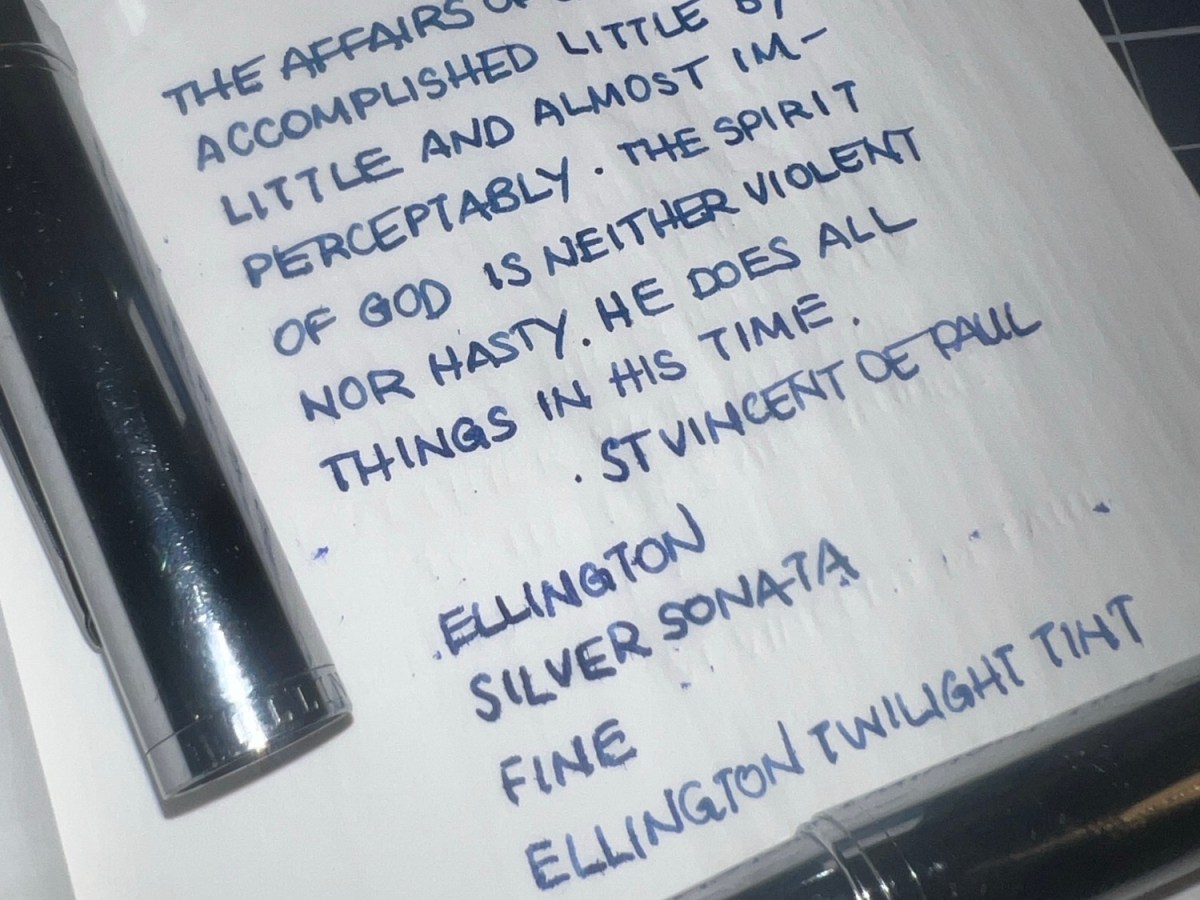 THE AFFAIRS OF
ACCOMPLISHED LITTLE BY
LITTLE AND ALMOST IM-
PERCEPTABLY. THE SPIRIT
OF GOD IS NEITHER VIOLENT
NOR HASTY. HE DOES ALL
THINGS IN HIS TIME.
. ST VINCENT DE PAUL
ELLINGTON
SILVER SONATA
FINE
ELLINGTON TWILIGHT TINT